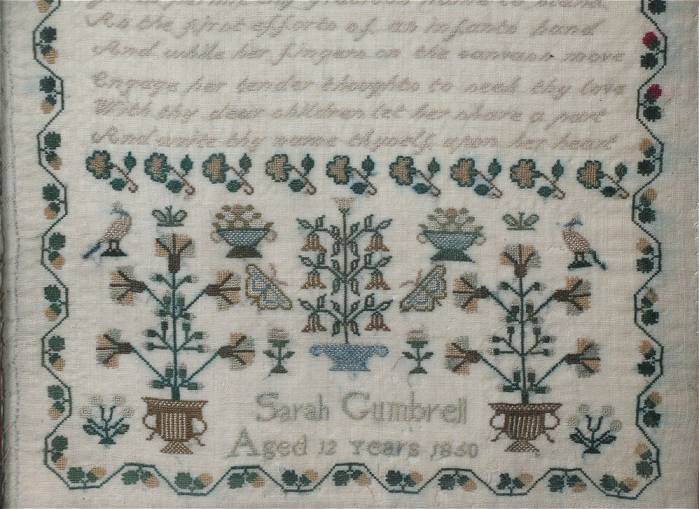 permit thy gracious name to stand
As the first efforts of an infants hand
And while her fingers on the canvass move
Engage her tender thoughts to seek thy love
With thy dear children let her share a part
And write thy name thyself upon her heart
Sarah Gumbrell
Aged 12 Years 1850